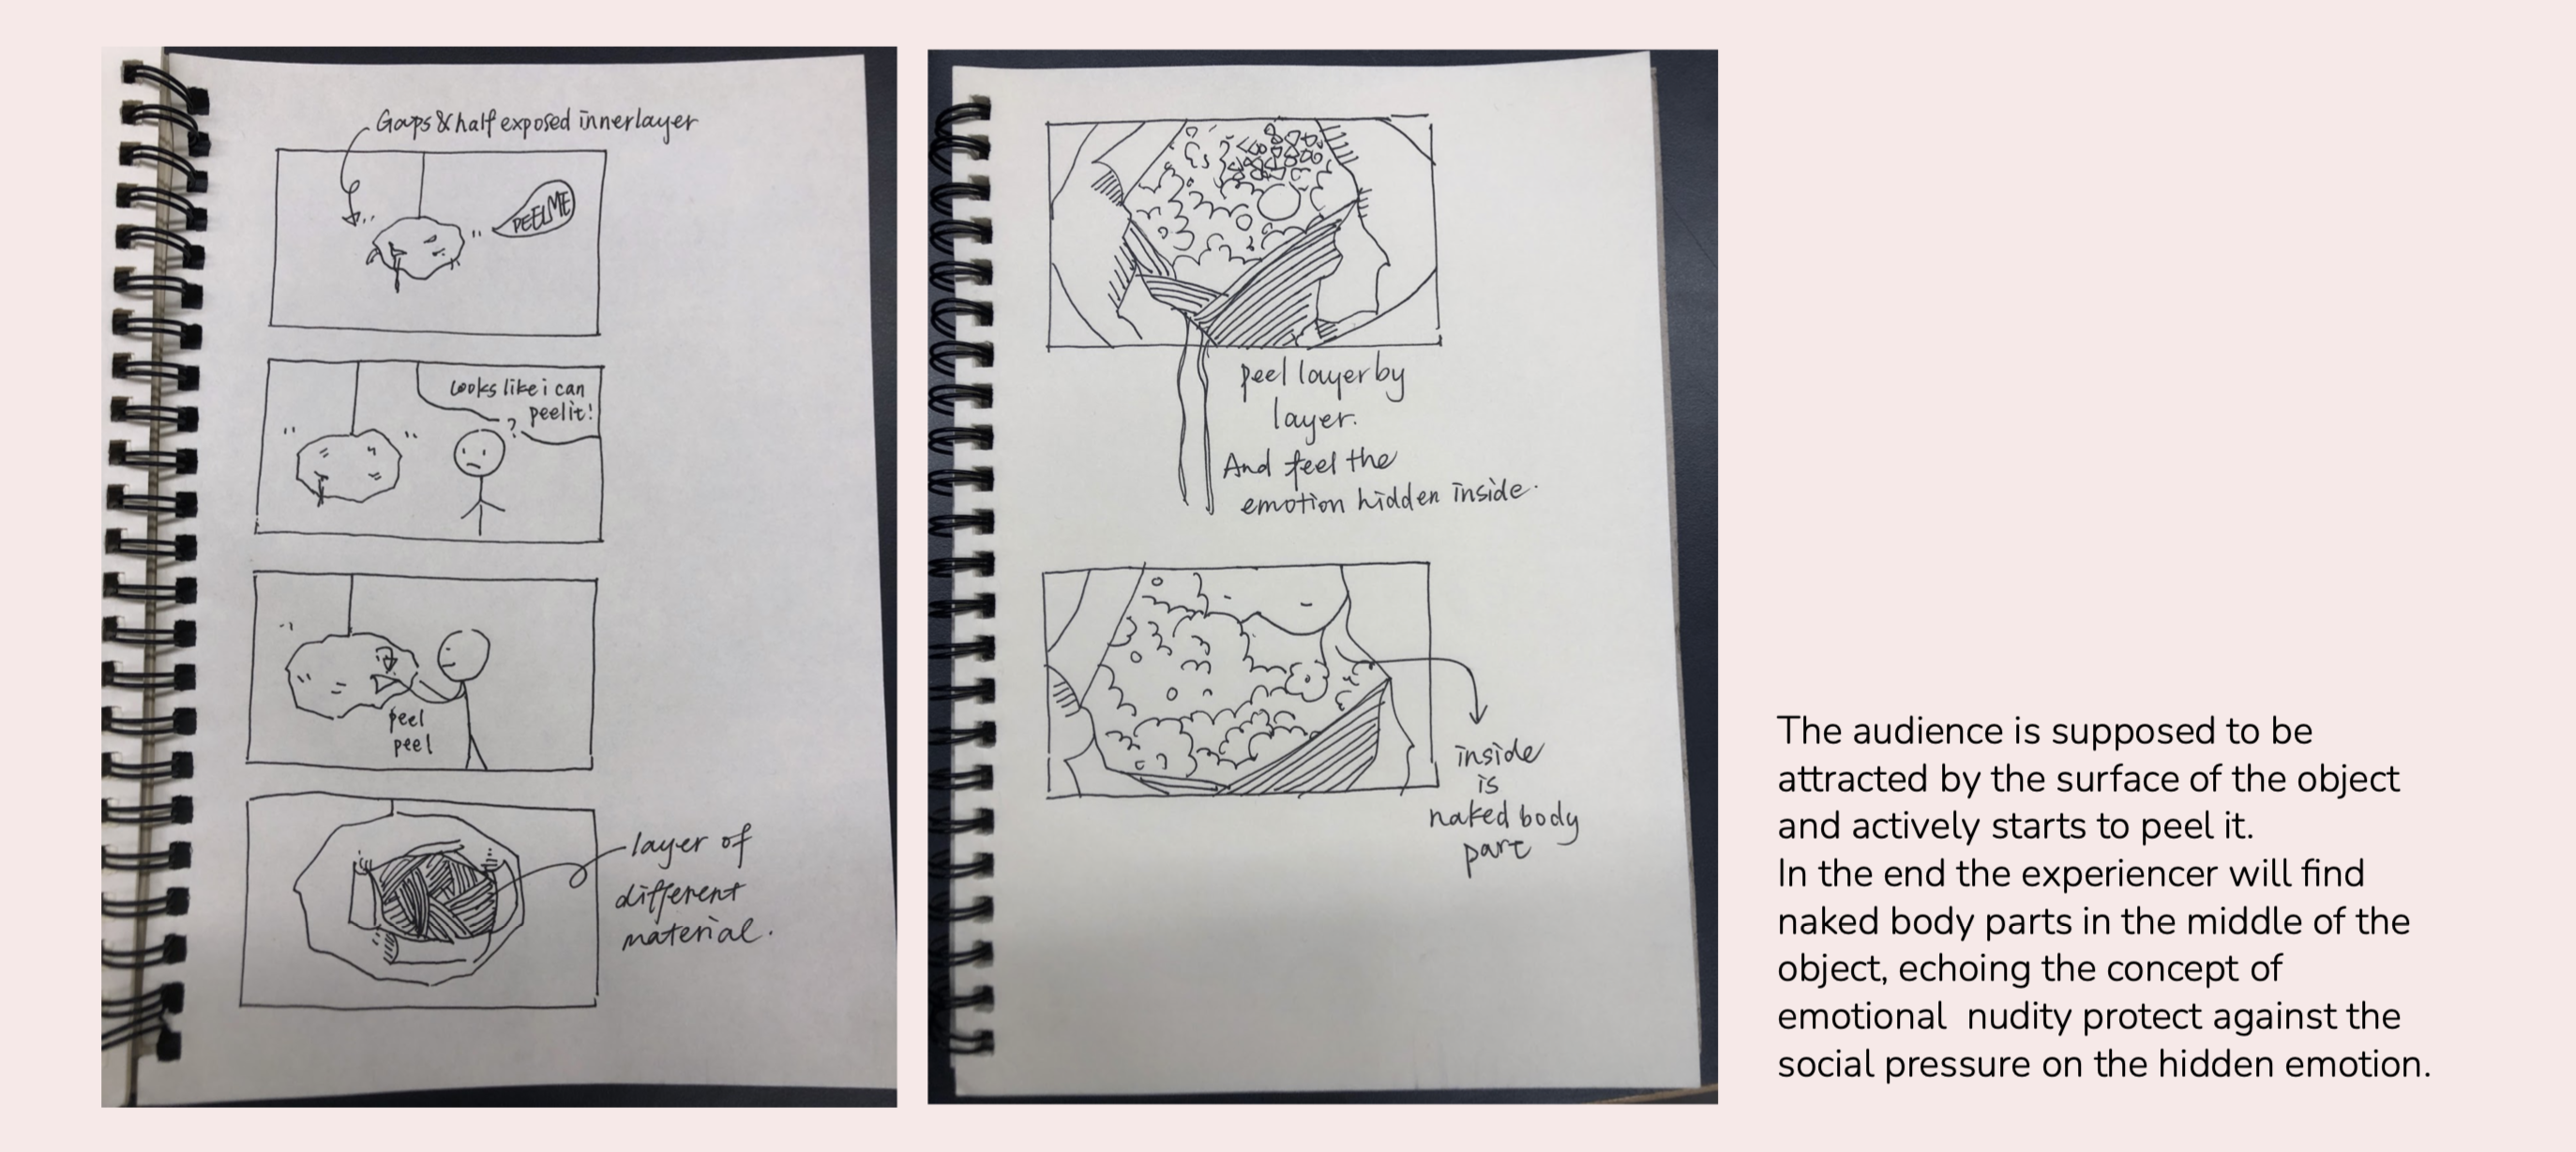 Gaps & half exposed inner layer
PEEL ME
Looks like i can
peel it!
?
peel
peel
layer of
different
material.
peel layer by
layer.
And feel the
emotion hidden inside.
inside
is
naked body
part
The audience is supposed to be
attracted by the surface of the object
and actively starts to peel it.
In the end the experiencer will find
naked body parts in the middle of the
object, echoing the concept of
emotional  nudity protect against the
social pressure on the hidden emotion.